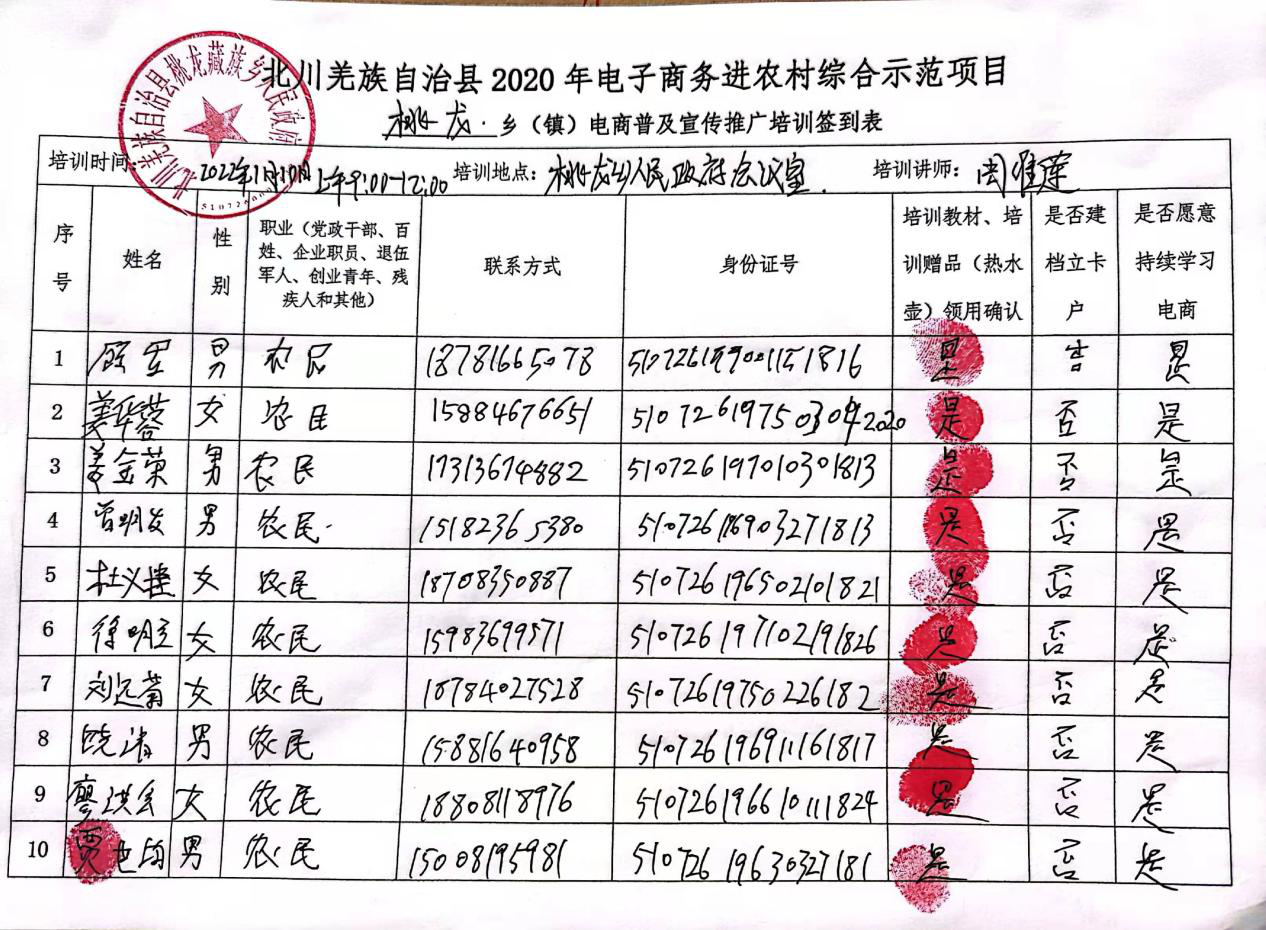 北川羌族自治县桃龙藏族乡人民政府
北川羌族自治县 2020 年电子商务进农村综合示范项目
桃龙乡（镇）电商普及宣传推广培训签到表
培训时间： 2022年1月10日上午9:00-12:00 培训地点：桃龙乡人民政府会议室 培训讲师：
序号 姓名 性别 职业（党政干部、百姓、企业职员、退伍军人、创业青年、残疾人和其他） 联系方式 身份证号 培训教材、培训赠品（热水壶）领用确认 是否建档立卡户 是否愿意持续学习电商
1 男 农民 18781665078 是 否 是
2 姜华蓉 女 农民 15884676651 510726197503042020 是 否 是
3 姜金荣 男 农民 17313674882 510726197010301813 是 否 是
4 曾明发 男 农民 15182365380 是 否 是
5 女 农民 18708350887 510726196502101821 是 否 是
6 女 农民 15983699571 510726197102191826 是 否 是
7 刘远菊 女 农民 18784027528 51072619750226182 是 否 是
8 男 农民 15881640958 510726196911161817 是 否 是
9 廖洪会 女 农民 18808118976 510726196610111824 是 否 是
10 男 农民 15008195981 51072619630327181 是 否 是